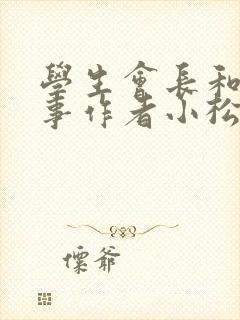 學生會長和
事作者小松
慄爺